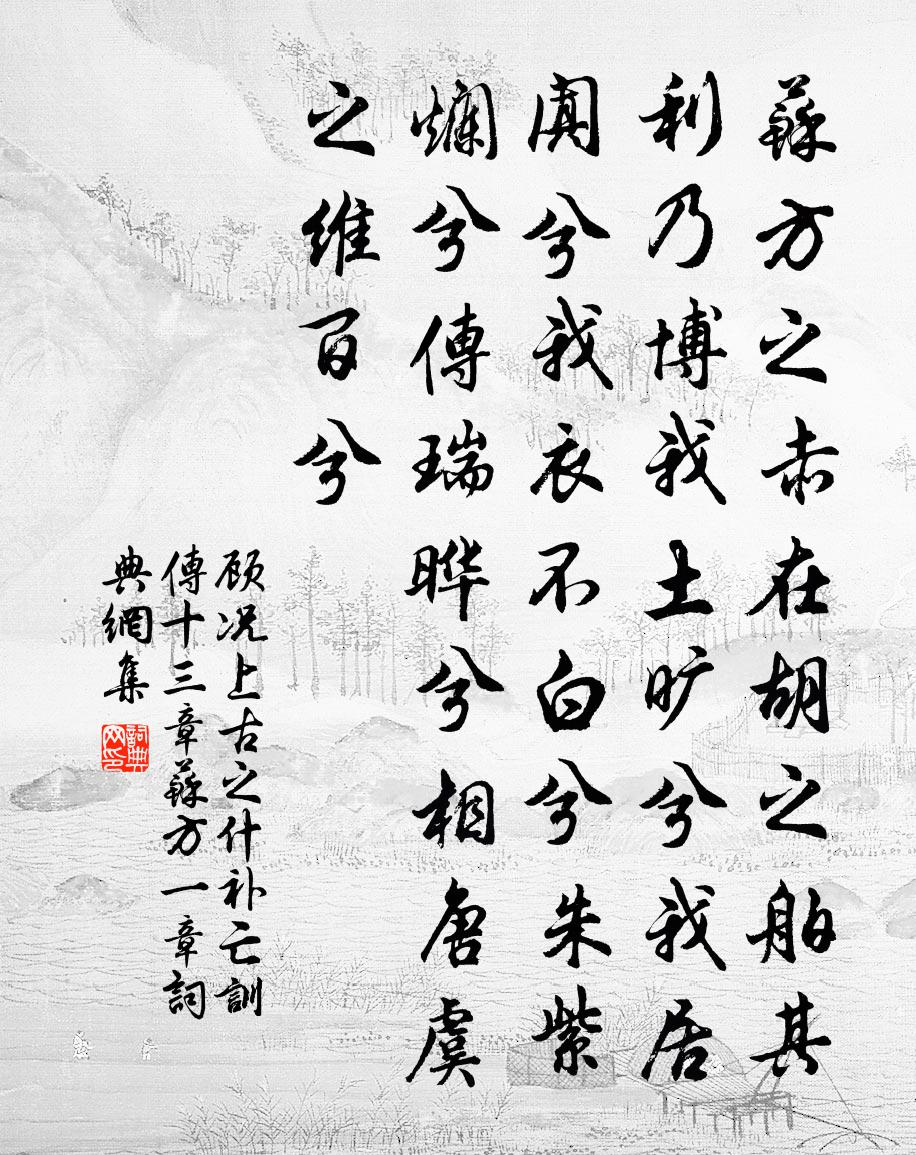 蘇方之赤在胡之舶其
利乃博我土旷兮我居
闐兮我衣不白兮朱紫
爛兮傳瑞晔兮相唐虞
之維百兮
顾况上古之什补亡訓
傳十三章蘇方一章詞
典網集
詞典网印